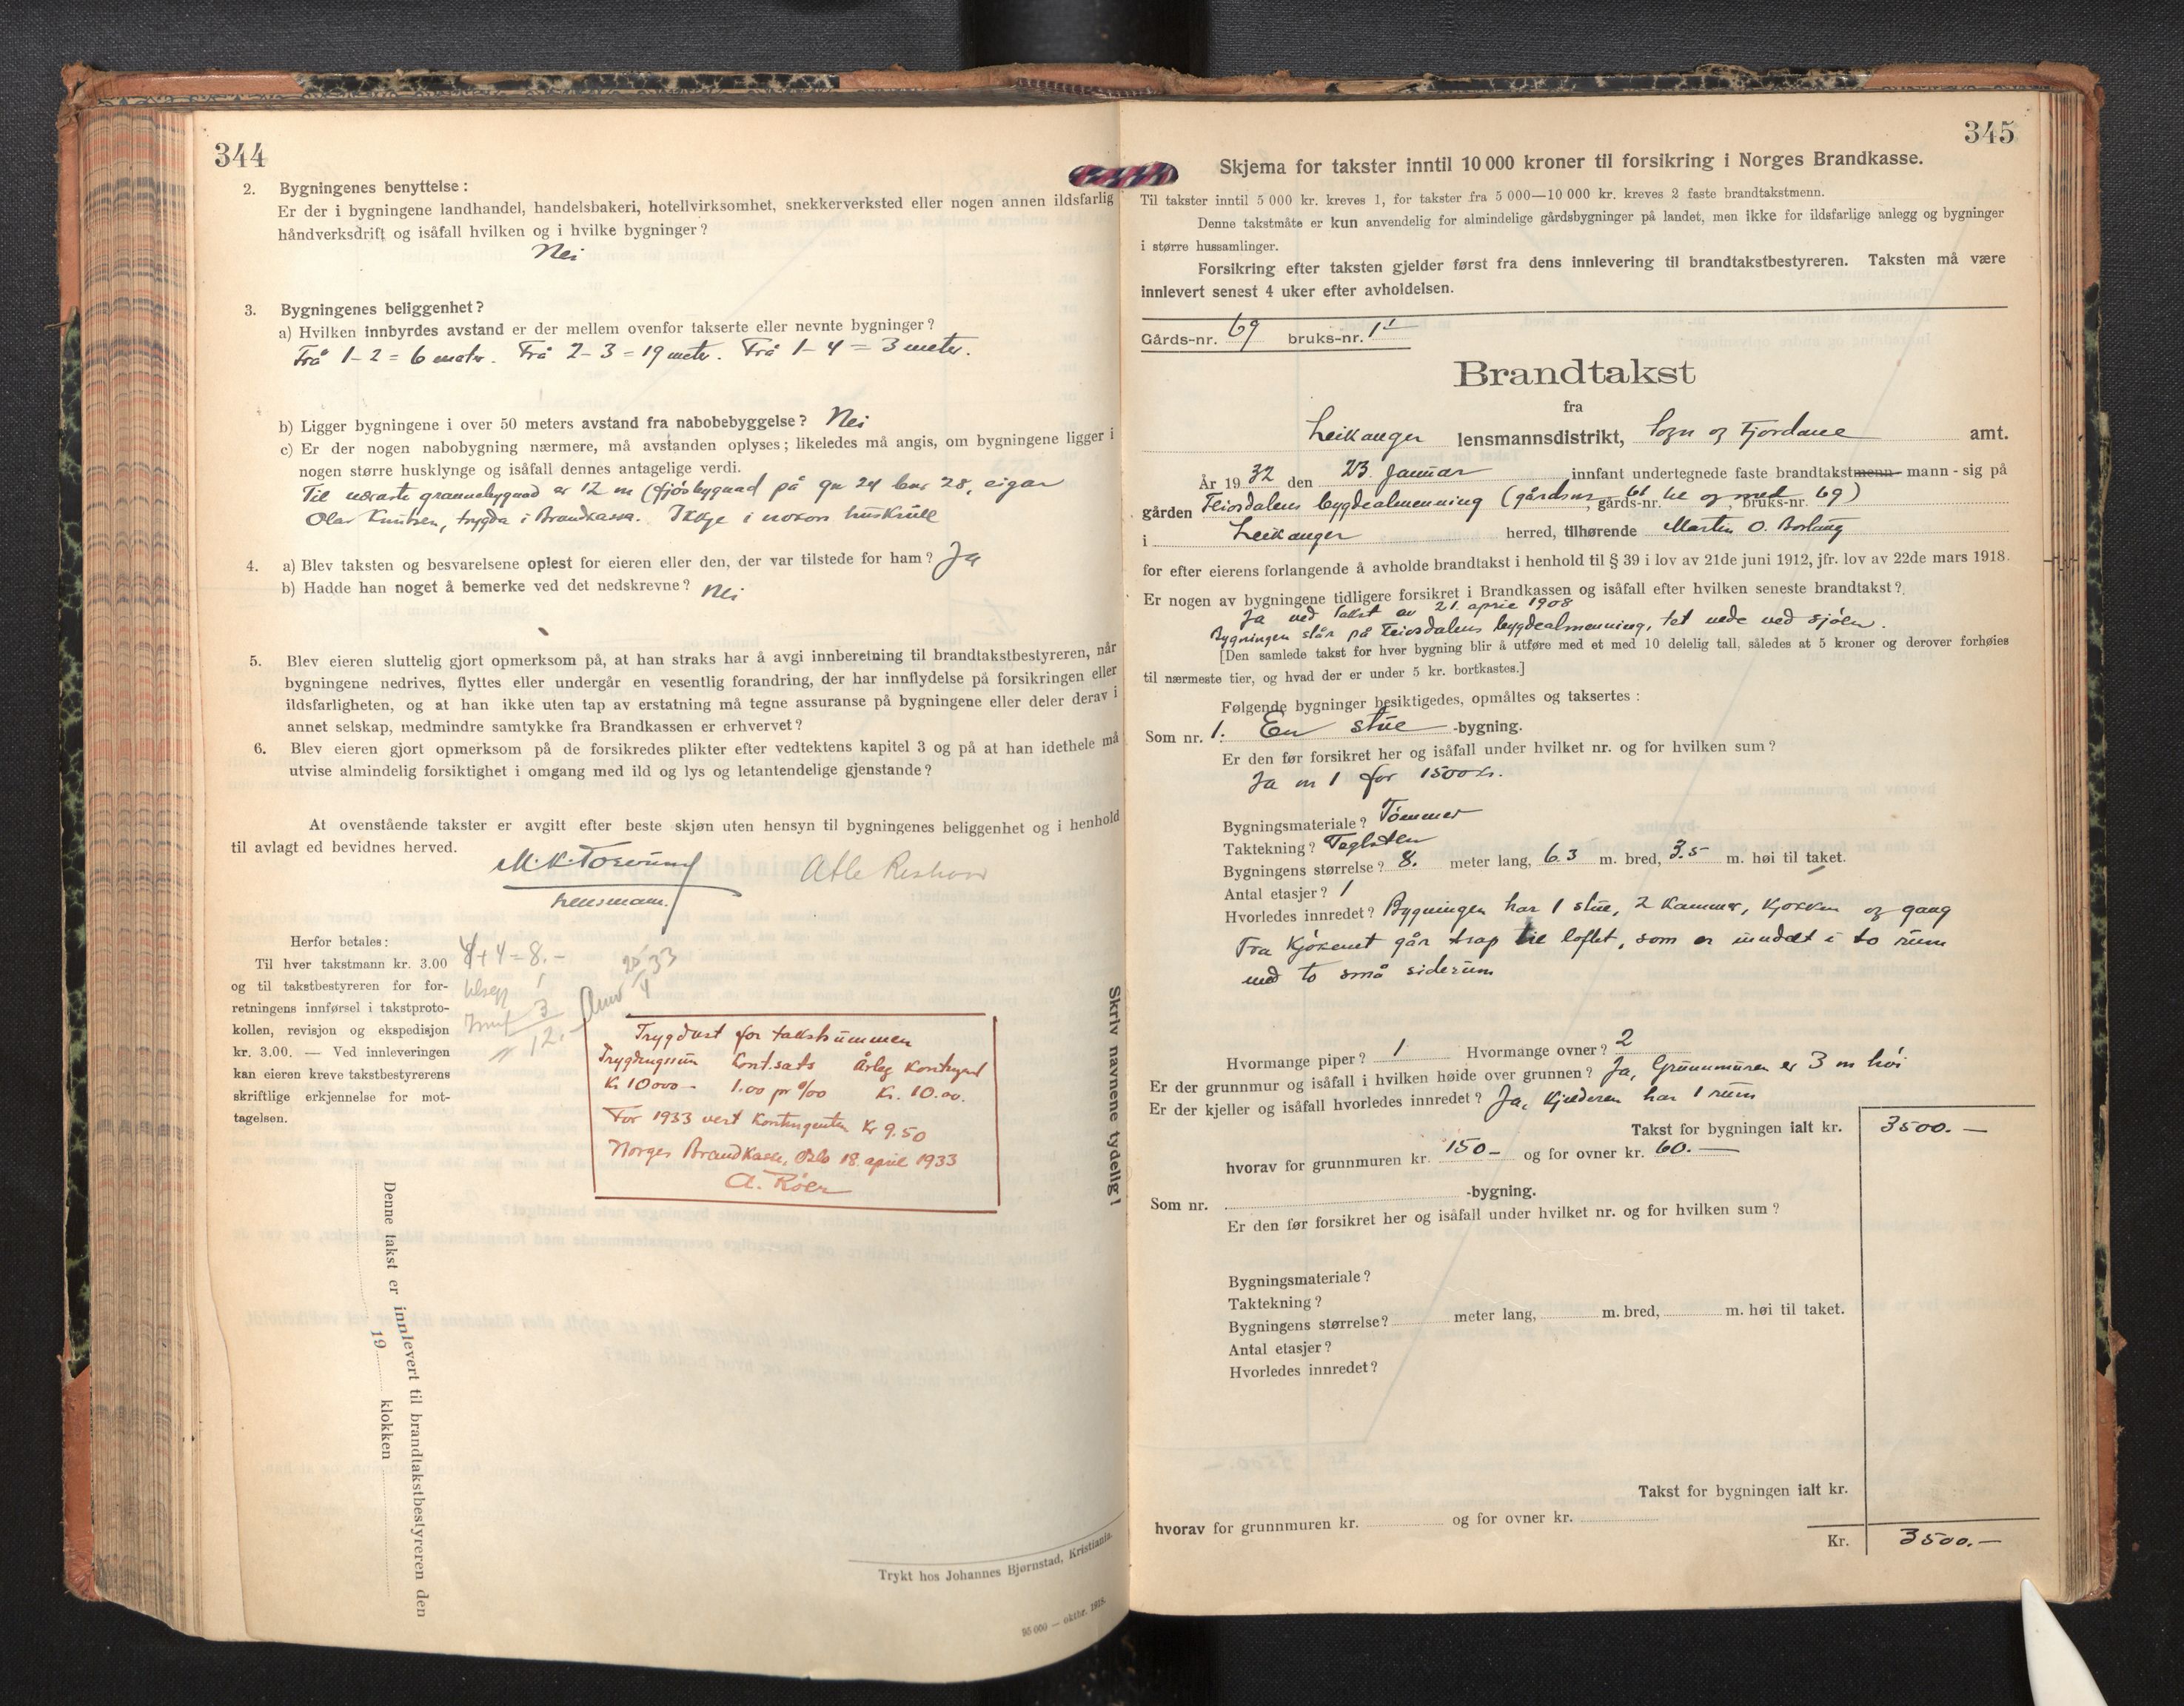 344
2. Bygningenes benyttelse:
Er der i bygningene landhandel, handelsbakeri, hotellvirksomhet, snekkerverksted eller nogen annen ildsfarlig
håndverksdrift og isåfall hvilken og i hvilke bygninger?
Nei
3. Bygningenes beliggenhet?
a) Hvilken innbyrdes avstand er der mellem ovenfor takserte eller nevnte bygninger?
Frå 1-2 = 6 meter. Frå 2-3 = 19 meter. Frå 1-4 = 3 meter.
b) Ligger bygningene i over 50 meters avstand fra nabobebyggelse? Nei
c) Er der nogen nabobygning nærmere, må avstanden oplyses; likeledes må angis, om bygningene ligger i
nogen større husklynge og isåfall dennes antagelige verdi.
Til næraste grannebygnad er 12 m (fjösbygnad på gn 24 bnr 28, eigar
Olav Knutsen, trygda i Brandkassa. Ikkje i nokon
4. a) Blev taksten og besvarelsene oplest for eieren eller den, der var tilstede for ham? Ja
b) Hadde han noget å bemerke ved det nedskrevne? Nei
5. Blev eieren sluttelig gjort opmerksom på, at han straks har å avgi innberetning til brandtakstbestyreren, når
bygningene nedrives, flyttes eller undergår en vesentlig forandring, der har innflydelse på forsikringen eller
ildsfarligheten, og at han ikke uten tap av erstatning må tegne assuranse på bygningene eller deler derav i
annet selskap, medmindre samtykke fra Brandkassen er erhvervet?
6. Blev eieren gjort opmerksom på de forsikredes plikter efter vedtektens kapitel 3 og på at han idethele må
utvise almindelig forsiktighet i omgang med ild og lys og letantendelige gjenstande?
At ovenstående takster er avgitt efter beste skjøn uten hensyn til bygningenes beliggenhet og i henhold
til avlagt ed bevidnes herved.
lensmann.
Herfor betales:
Til hver takstmann kr. 3.00
og til takstbestyreren for for-
retningens innførsel i takstproto-
kollen, revisjon og ekspedisjon
kr. 3.00. — Ved innleveringen
kan eieren kreve takstbestyrerens
skriftlige erkjennelse for mot-
tagelsen.
4+4=8.-
3
12.-
Trygdast for takstsummen
Trygdingssum Kont.sats Årleg Kontingent
Kr 10000- 1.00 pr ‰ Kr. 10.00.
For 1933 vert kontingenten Kr 9.50
Norges Brandkasse, Oslo 18. april 1933
A. Röer
Denne takst er innlevert til brandtakstbestyreren den
19 klokken
Skriv navnene tydelig!
Trykt hos Johannes Bjørnstad, Kristiania.
50 000 — oktbr. 1918.
345
Skjema for takster inntil 10 000 kroner til forsikring i Norges Brandkasse.
Til takster inntil 5 000 kr. kreves 1, for takster fra 5 000—10 000 kr. kreves 2 faste brandtakstmenn.
Denne takstmåte er kun anvendelig for almindelige gårdsbygninger på landet, men ikke for ildsfarlige anlegg og bygninger
i større hussamlinger.
Forsikring efter taksten gjelder først fra dens innlevering til brandtakstbestyreren. Taksten må være
innlevert senest 4 uker efter avholdelsen.
Gårds-nr. 69 bruks-nr. 1
Brandtakst
fra
Leikanger lensmannsdistrikt, Sogn og Fjordane amt.
År 1932 den 23 Januar innfant undertegnede faste brandtakstmenn - mann - sig på
gården Feiosdalens bygdealmenning (gårdsnr 66 til og med 69), gårds-nr. , bruks-nr.
i Leikanger herred, tilhørende Martin O. Borlaug
for efter eierens forlangende å avholde brandtakst i henhold til § 39 i lov av 21de juni 1912, jfr. lov av 22de mars 1918.
Er nogen av bygningene tidligere forsikret i Brandkassen og isåfall efter hvilken seneste brandtakst?
Ja ved takst av 21. april 1908
Bygningen står på Feiosdalens bygdealmenning, tet nede ved sjöen.
[Den samlede takst for hver bygning blir å utføre med et med 10 delelig tall, således at 5 kroner og derover forhøies
til nærmeste tier, og hvad der er under 5 kr. bortkastes.]
Følgende bygninger besiktigedes, opmåltes og taksertes:
Som nr. 1. En stue -bygning.
Er den før forsikret her og isåfall under hvilket nr. og for hvilken sum?
Ja nr 1 for 1500 kr.
Bygningsmateriale? Tömmer
Taktekning? Teglsten
Bygningens størrelse? 8. meter lang, 6.3 m. bred, 3.5 m. høi til taket.
Antal etasjer? 1
Hvorledes innredet? Bygningen har 1 stue, 2 kammer, kjökken og gang
Fra kjökenet går trap til loftet, som er inndelt i to rum
med to små siderum
Hvormange piper? 1 Hvormange ovner? 2
Er der grunnmur og isåfall i hvilken høide over grunnen? Ja, Grunnmuren er 3 m höi
Er der kjeller og isåfall hvorledes innredet? Ja, kjelderen har 1 rum
Takst for bygningen ialt kr. 3500.—
hvorav for grunnmuren kr. 150- og for ovner kr. 60.—
Som nr. -bygning.
Er den før forsikret her og isåfall under hvilket nr. og for hvilken sum?
Bygningsmateriale?
Taktekning?
Bygningens størrelse? meter lang, m. bred, m. høi til taket.
Antal etasjer?
Hvorledes innredet?
Takst for bygningen ialt kr.
hvorav for grunnmuren kr. og for ovner kr.
Kr. 3500.—